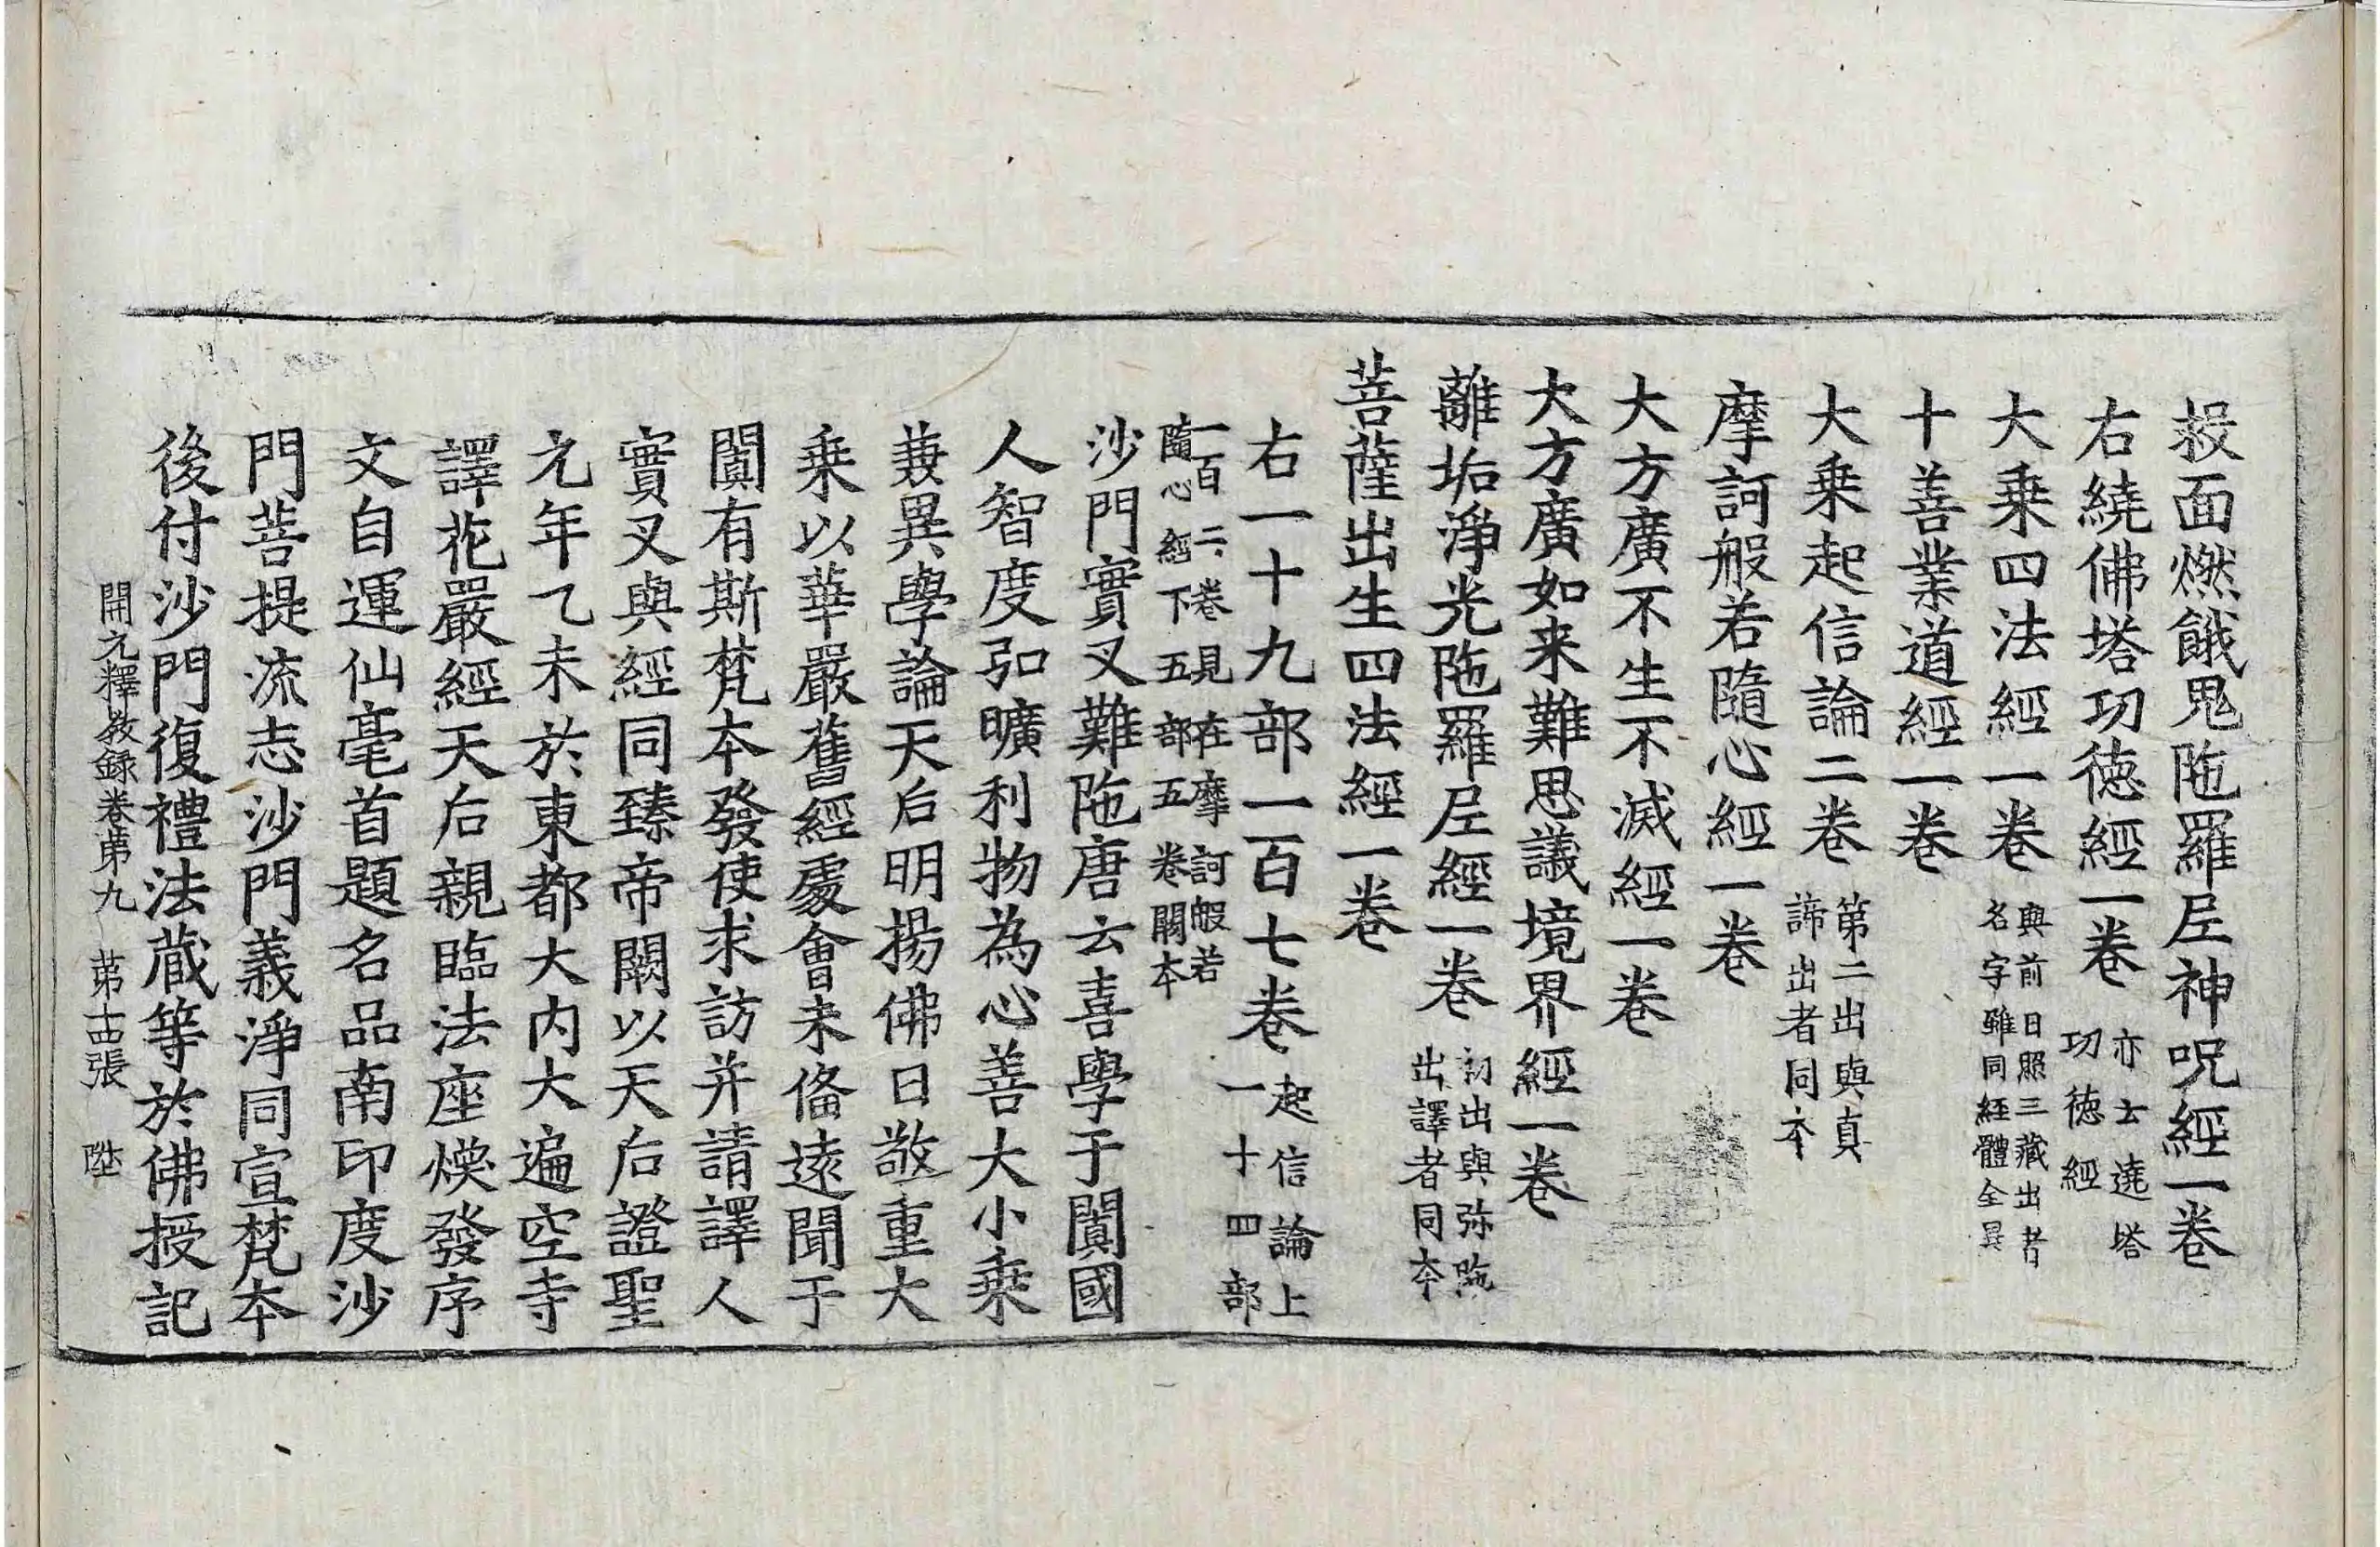 救面燃餓鬼陁羅尼神呪經一卷
右繞佛塔功徳經一卷 亦云遶塔功徳經
大乗四法經一卷 與前日照三藏出者名字雖同經體全異
十善業道經一卷
大乗起信論二卷 第二出與真諦出者同夲
摩訶般若隨心經一卷
大方廣不生不滅經一卷
大方廣如来難思議境界經一卷
離垢淨光陁羅尼經一卷 初出與弥陁出譯者同夲
菩薩出生四法經一卷
右一十九部一百七卷 起信論上一十四部
一百二卷見在摩訶般若隨心經下五部五卷闕夲
沙門實叉難陁唐云喜學于闐國
人智度弘曠利物為心善大小乗
兼異學論天后明揚佛日敬重大
乗以華嚴舊經處會未俻遠聞于
闐有斯梵夲發使求訪并請譯人
實叉與經同臻帝闕以天后證聖
元年乙未於東都大内大遍空寺
譯花嚴經天后親臨法座煥發序
文自運仙毫首題名品南印度沙
門菩提流志沙門義淨同宣梵夲
後付沙門復禮法藏等於佛授記
開元釋教録卷苐九 苐十四張 陞